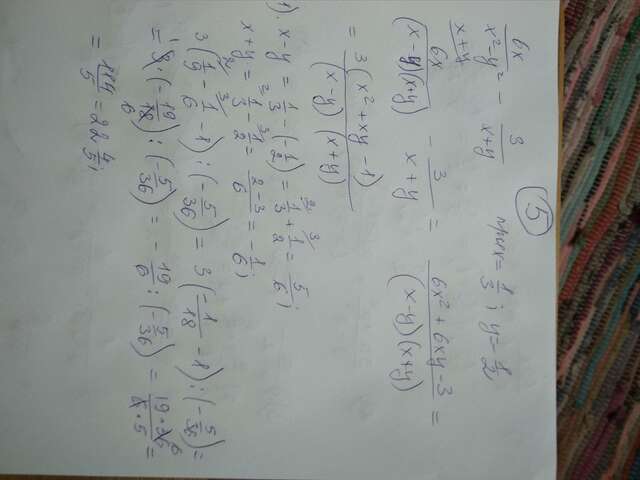 5
6x/(x²-y²) - 3/(x+y) при x = 1/3; y = -1/2
6x/(x-y)(x+y) - 3/(x+y) = (6x² + 6xy - 3)/(x-y)(x+y) =
= 3(x² + xy - 1)/(x-y)(x+y)
1). x-y = 1/3 - (-1/2) = 1/3 + 1/2 = 5/6;
x+y = 1/3 - 1/2 = (2-3)/6 = -1/6;
3(1/9 - 1/6 - 1) : (-5/36) = 3(-1/18 - 1) : (-5/36) =
= 3 · (-19/18) : (-5/36) = -19/6 : (-5/36) = 19·36/6·5 =
= 114/5 = 22 4/5;